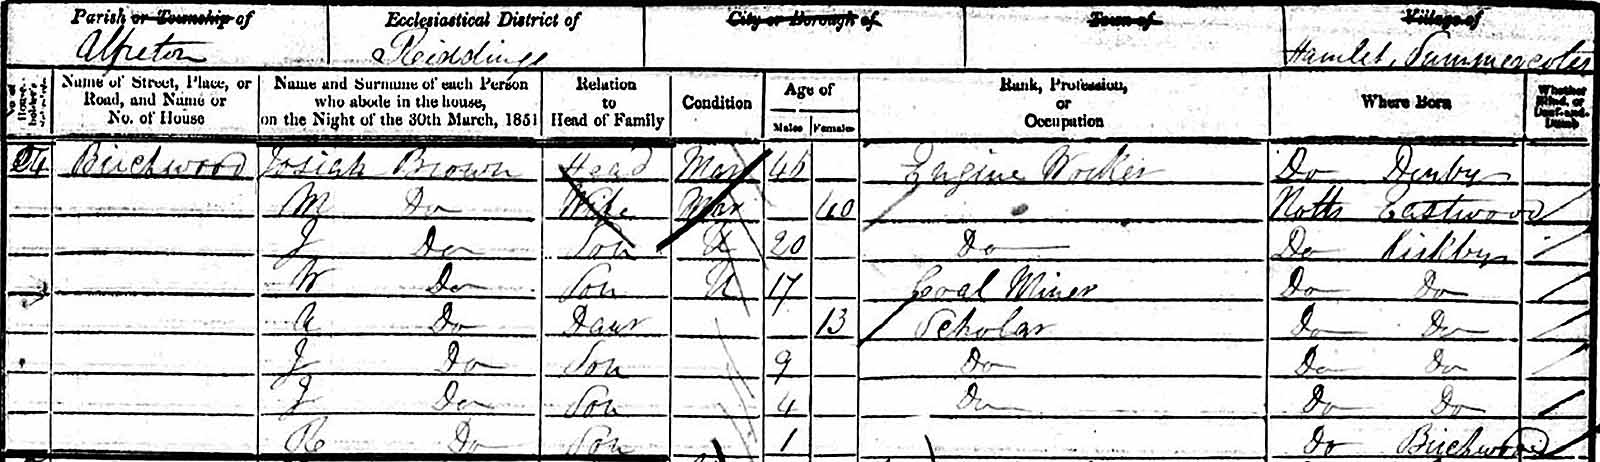 Parish or Township of Ecclesiastical District of City or Borough of Town of Village of
Alfreton Riddings Hamlet, Summercotes
No. of House-holder's Name of Street, Place, or Road, and Name or No. of House Name and Surname of each Person who abode in the house, on the Night of the 30th March, 1851 Relation to Head of Family Condition Age of Males Females Rank, Profession, or Occupation Where Born Whether Blind, or Deaf-and-Dumb
24 Birchwood Josiah Brown Head Mar 46 Engine Worker Do Denby
M Do Wife Mar 40 Notts Eastwood
J Do Son U 20 Do Do Kirkby
W Do Son U 17 Coal Miner Do Do
A Do Daur 13 Scholar Do Do
J Do Son 9 Do Do Do
J Do Son 4 Do Do Do
R Do Son 1 Do Birchwood